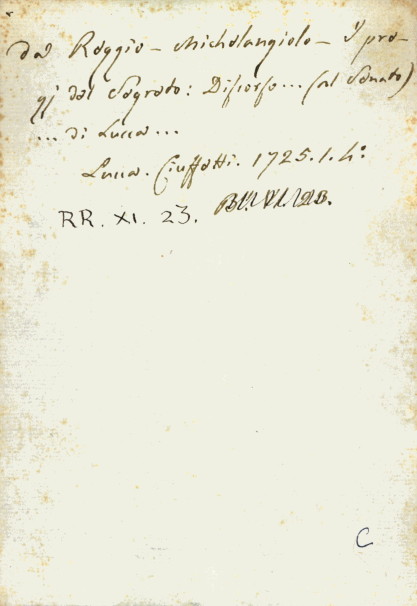 Da Reggio - Michelangiolo - I pre-
gj del Segreto: Discorso... (al Senato)
... di Lucca...
Lucca. Ciuffetti. 1725. 1. 4°
RR. XI. 23.
C